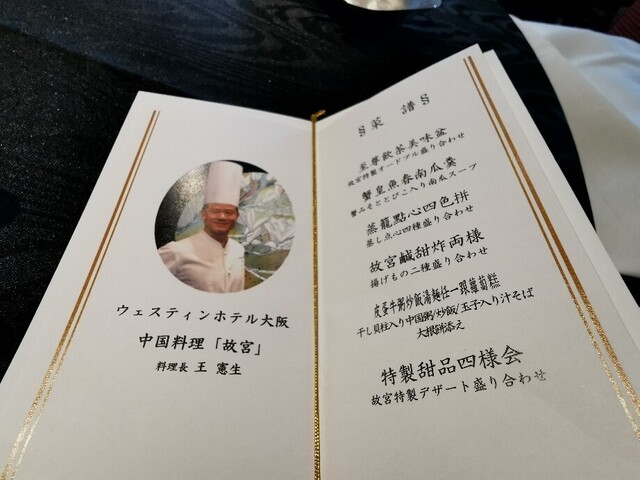 ウェスティンホテル大阪
中国料理「故宮」
料理長 王 憲生
§菜 譜§
至尊飲茶美味盆
故宮特製オードブル盛り合わせ
蟹皇魚春南瓜羹
蟹みそととびこ入り南瓜スープ
蒸籠點心四色拼
蒸し点心四種盛り合わせ
故宮鹹甜炸両様
揚げもの二種盛り合わせ
皮蛋牛粥炒飯湯麺任一跟蘿蔔糕
干し貝柱入り中国粥/炒飯/玉子入り汁そば
大根餅添え
特製甜品四様会
故宮特製デザート盛り合わせ